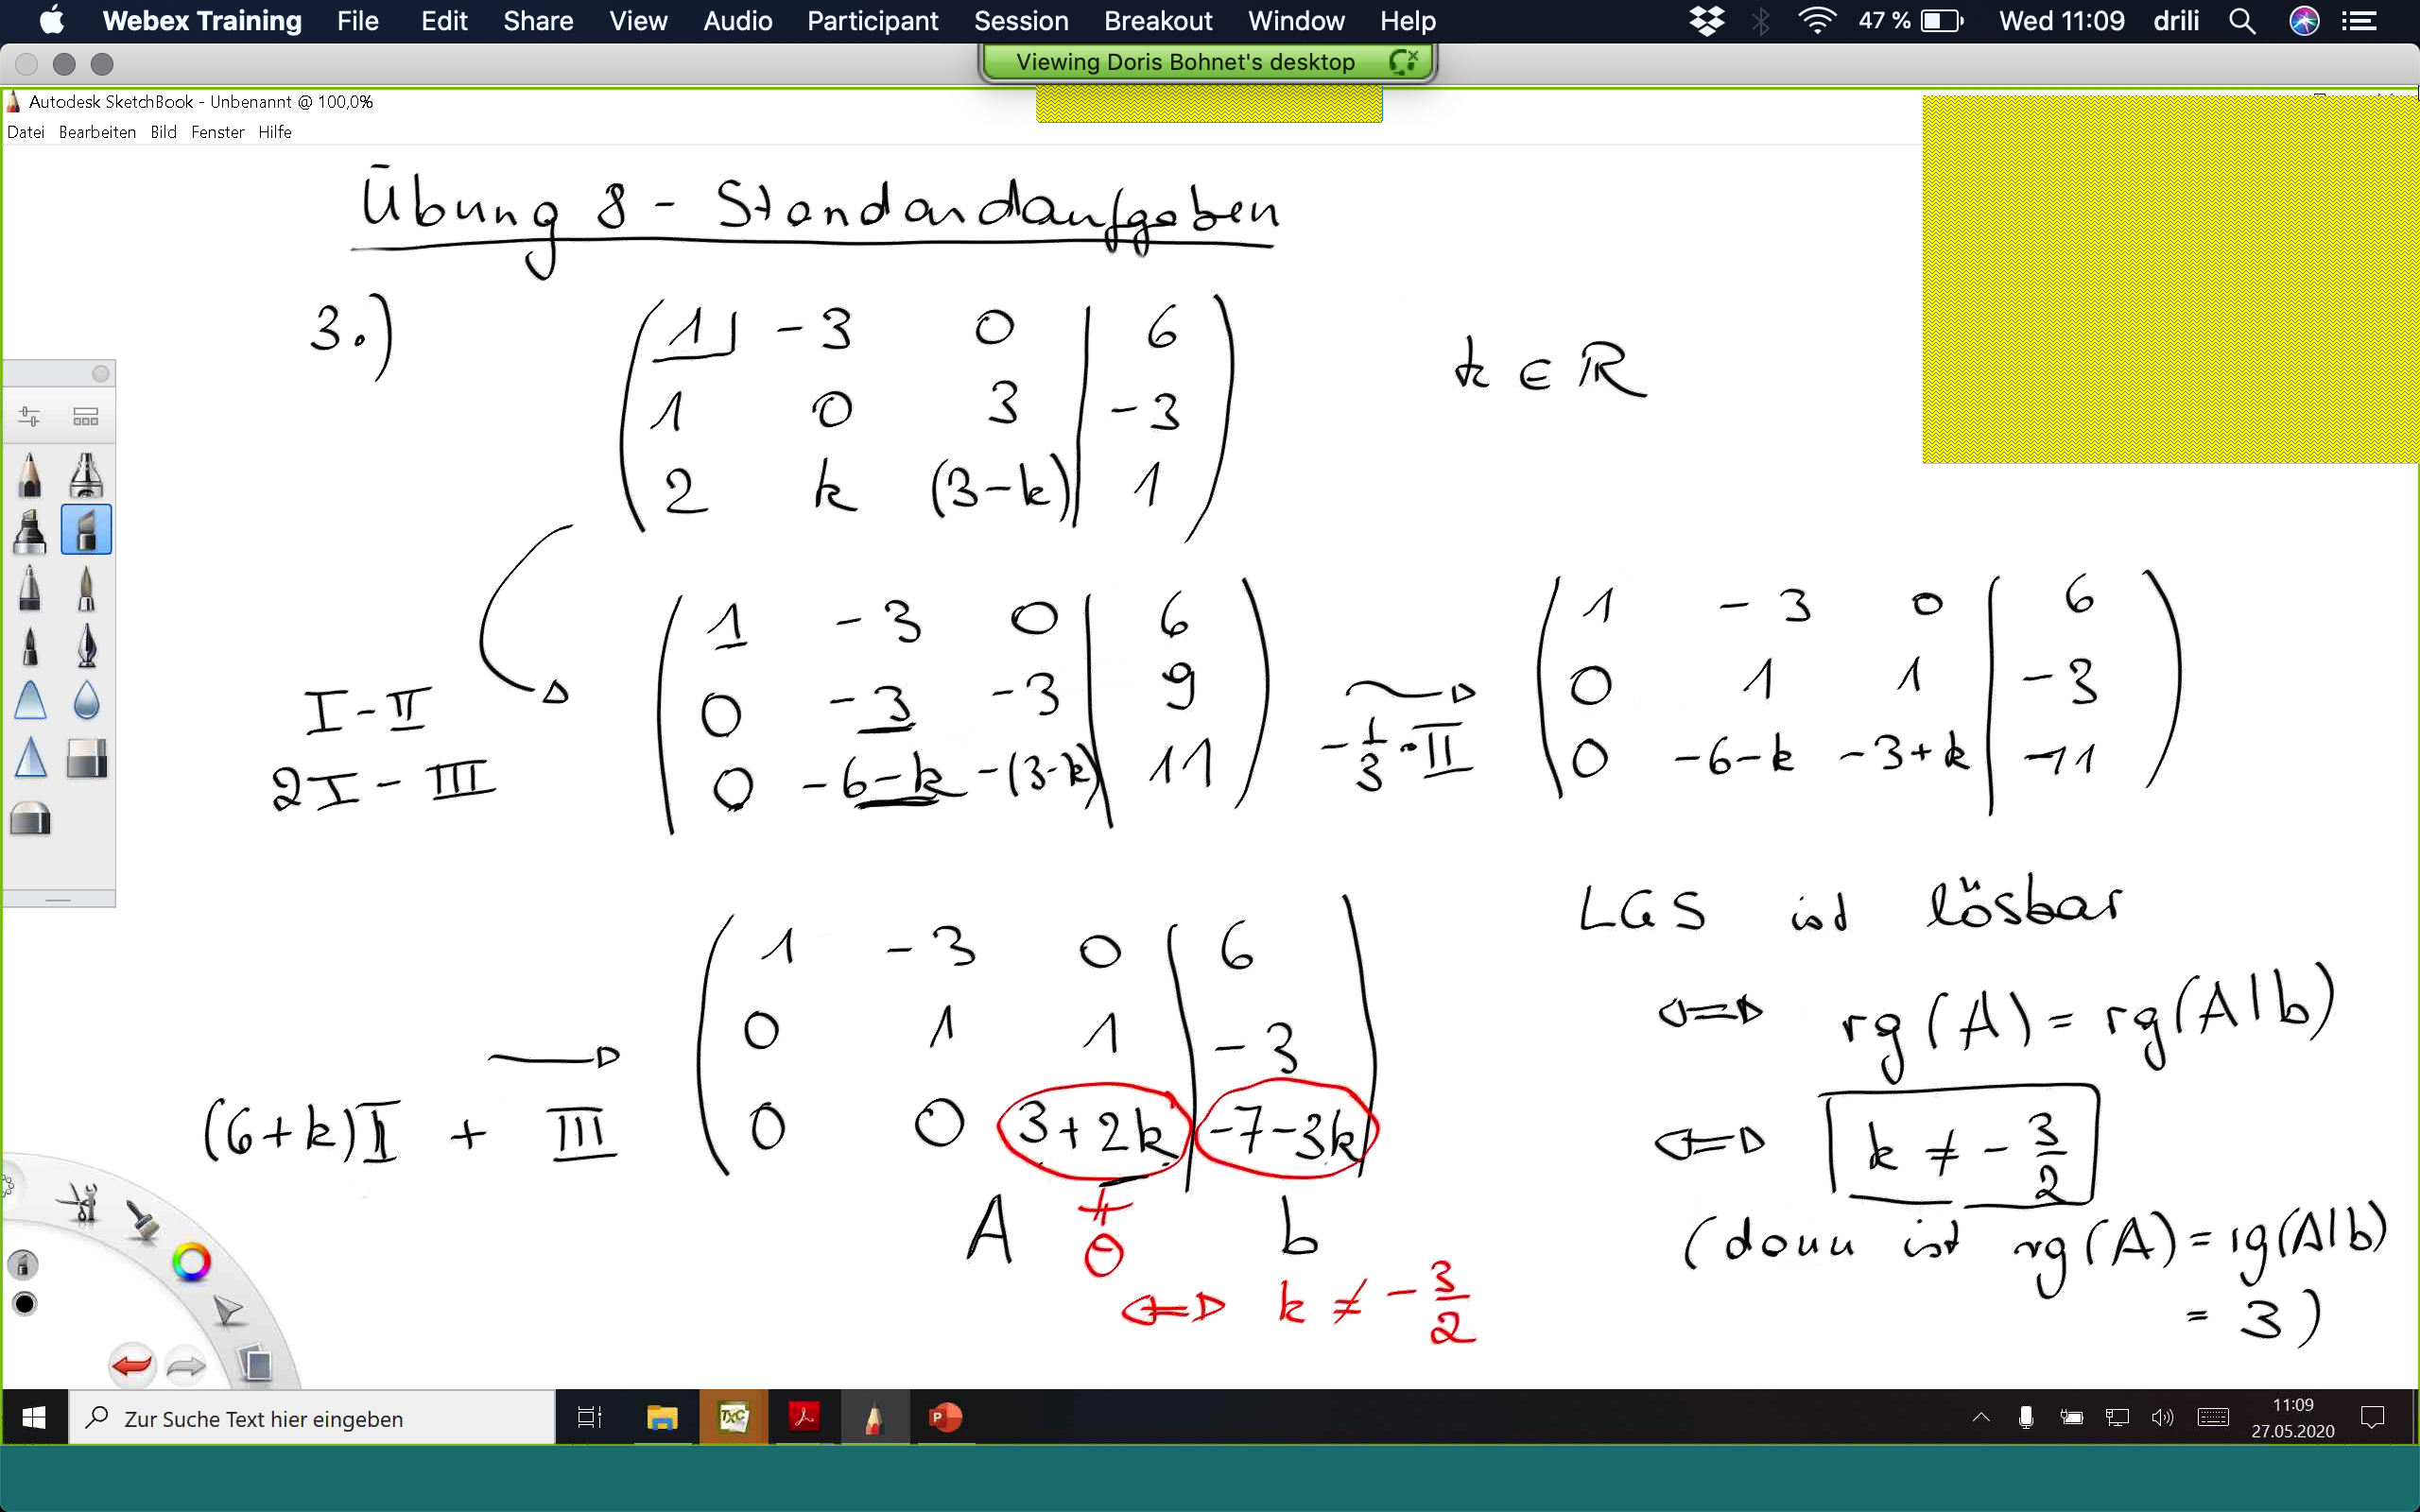 Webex Training File Edit Share View Audio Participant Session Breakout Window Help 47 % Wed 11:09 drili
Viewing Doris Bohnet's desktop
Autodesk SketchBook - Unbenannt @ 100,0%
Datei Bearbeiten Bild Fenster Hilfe
Übung 8 - Standardaufgaben
3.)
1 -3 0 | 6
1 0 3 | -3
2 k (3-k) | 1
k ∈ ℝ
I - II
2I - III
1 -3 0 | 6
0 -3 -3 | 9
0 -6-k -(3-k) | 11
-1/3 · II
1 -3 0 | 6
0 1 1 | -3
0 -6-k -3+k | 11
(6+k)II + III
1 -3 0 | 6
0 1 1 | -3
0 0 3+2k | -7-3k
A ≠ 0 b
⇔ k ≠ -3/2
LGS ist lösbar
⇔ rg(A) = rg(A|b)
⇔ k ≠ -3/2
(dann ist rg(A) = rg(A|b)
= 3)
Zur Suche Text hier eingeben
TXC
P
11:09
27.05.2020